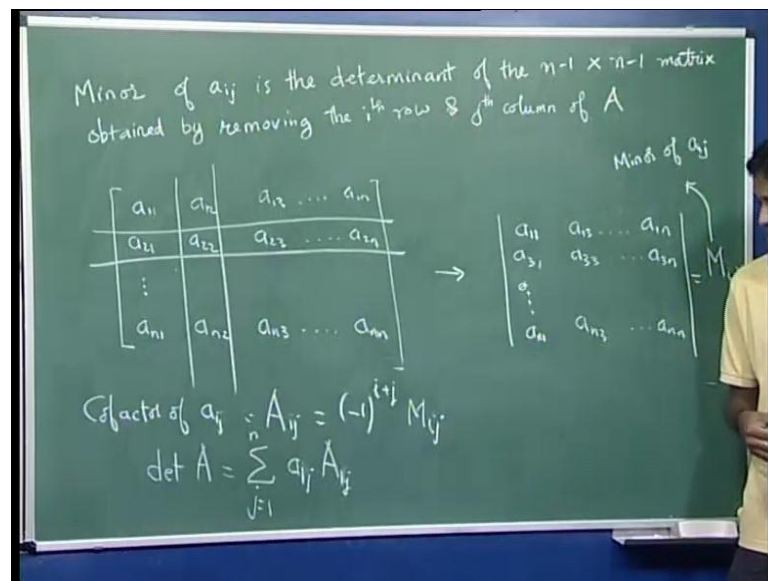 Minor of aij is the determinant of the n-1 × n-1 matrix
obtained by removing the ith row & jth column of A
Minor of aij
a11 a12 a13 .... a1n
a21 a22 a23 .... a2n
⋮
an1 an2 an3 .... ann
→
a11 a13 .... a1n
a31 a33 .... a3n
⋮
an1 an3 ... ann
= M
Cofactor of aij : Aij = (-1)^{i+j} Mij
det A = ∑_{j=1}^{n} a1j A1j